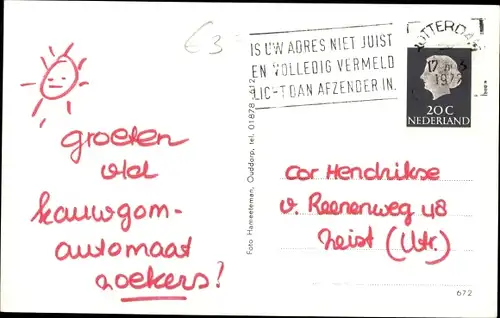 €3
IS UW ADRES NIET JUIST
EN VOLLEDIG VERMELD
LICHT DAN AFZENDER IN.
ROTTERDAM
1972
20C
NEDERLAND
groeten
v/d
kauwgom-
automaat
zoekers!
Foto Hameeteman, Ouddorp, tel. 01878 - 412
Cor Hendrikse
v. Reenenweg 48
Zeist (Utr.)
672